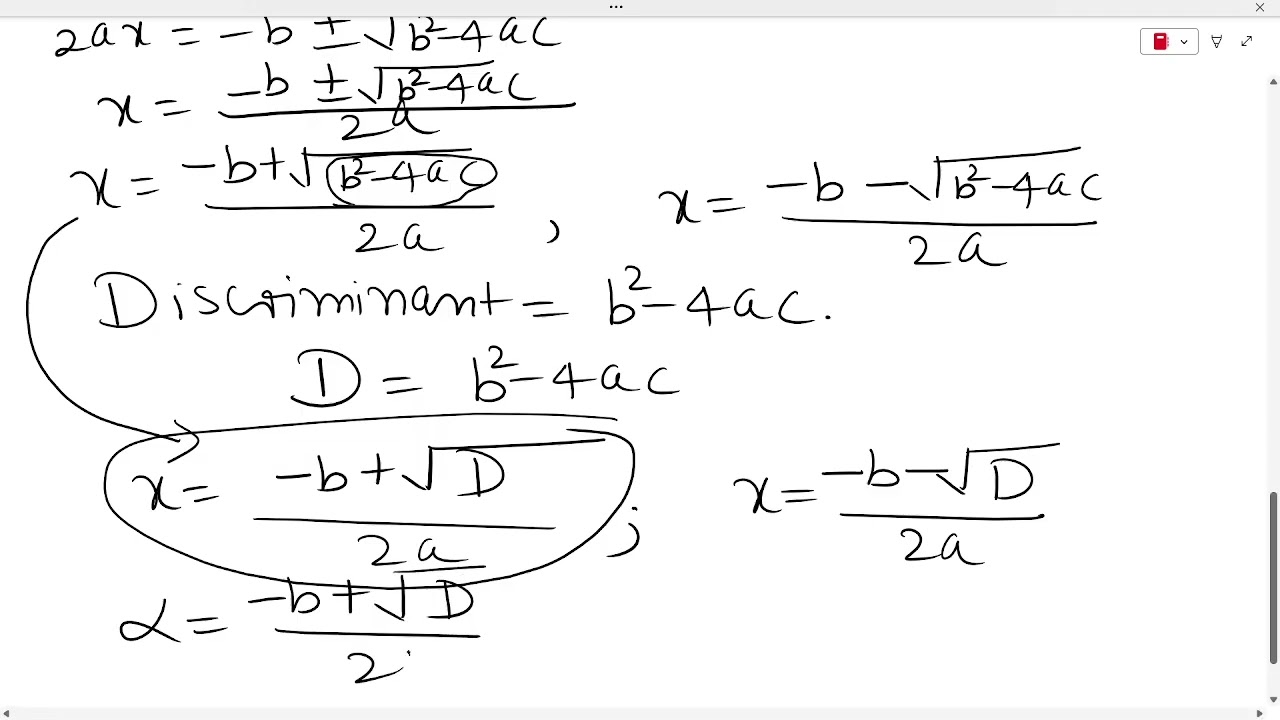 2ax = -b ± √b²-4ac
x = -b ± √b²-4ac / 2a
x = -b+√b²-4ac / 2a , x = -b-√b²-4ac / 2a
Discriminant = b²-4ac.
D = b²-4ac
x = -b+√D / 2a ; x = -b-√D / 2a
α = -b+√D / 2